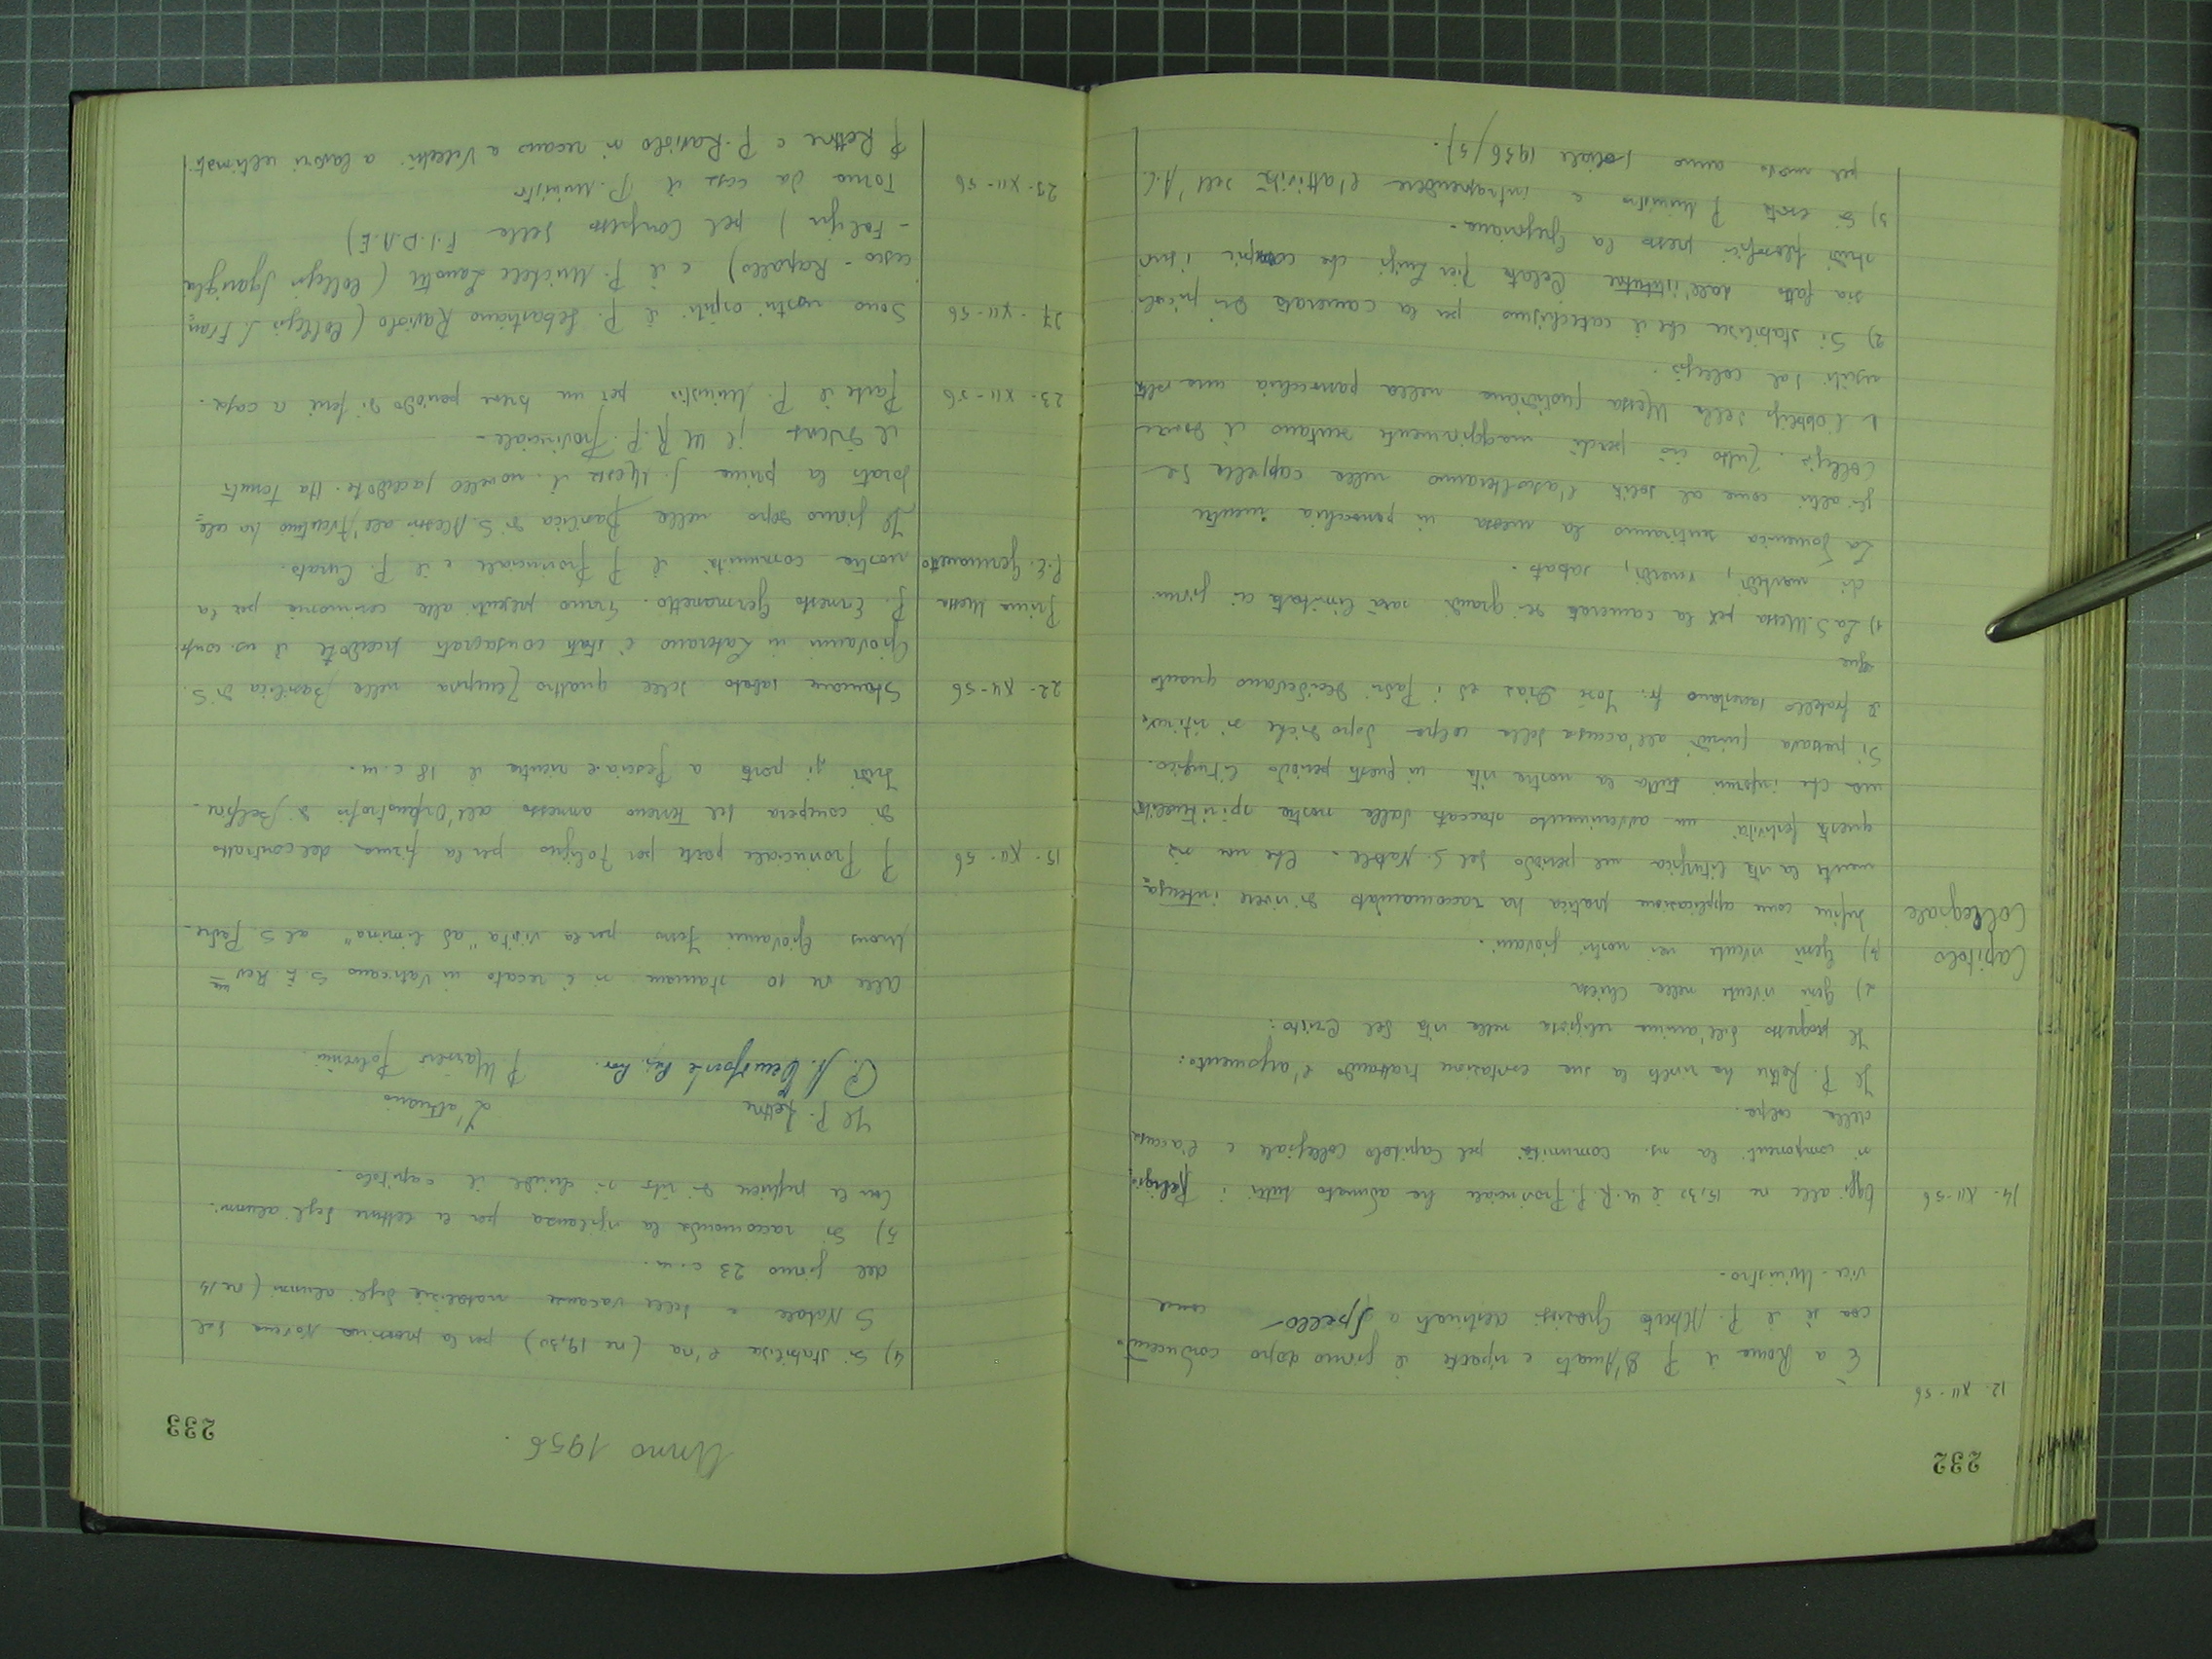 232
12. XII-56
È a Roma il P. D'Amato e riparte il giorno dopo conducendo
con sè il P. Alberto Graziosi destinato a Spello come
vice-Ministro.
14-XII-56
Oggi alle re 15,30 il M.R.P. Provinciale ha adunato tutti i Religio
si componenti la ns. comunità pel Capitolo Collegiale e l'accusa
della colpa.
Il P. Rettore ha rivolto la sua esortazione trattando l'argomento:
Il progresso dell'anima religiosa nella vita del Cristo:
2) Gesù vivente nella Chiesa
3) Gesù vivente nei nostri giovani.
Capitolo
Collegiale
Infine come applicazione pratica ha raccomandato di vivere intensa=
mente la vita liturgica nel periodo del S. Natale. Che non sia
questa festività un avvenimento staccato dalla nostra spiritualità
ma che informi tutta la nostra vita in questo periodo liturgico.
Si passava quindi all'accusa della colpa dopo di che si ritirava
il fratello sacrestano fr. José Diaz ed i Padri decidevano quanto
segue
1) La S. Messa per la camerata dei grandi sarà limitata ai giorni
di martedì, venerdì, sabato.
La domenica sentiranno la messa in parrocchia mentre
gli altri come al solito l'ascolteranno nella cappella del
Collegio. Tutto ciò perchè maggiormente sentano il dovere
e l'obbligo della Messa quotidiana nella parrocchia una volta
usciti dal collegio.
2) Si stabilisce che il catechismo per la camerata dei piccoli
sia fatto dall'istitutore Celato Pier Luigi che compie i suoi
studi filosofici presso la Gregoriana.
3) Si esorta P. Ministro a intraprendere l'attività dell'A.C.
pel nuovo anno sociale 1956/57.
Anno 1956.
233
4) Si stabilisce l'ora (re 19,30) per la prossima Novena del
S Natale e delle vacanze natalizie degli alunni (re 14
del giorno 23 c.m.
5) Si raccomanda la vigilanza per le letture degli alunni.
Con le preghiere di rito si chiude il capitolo.
Il P. Rettore
L'attuario
P. Mariano
alle re 10 stamane si è recato in Vaticano S. E Rev ma
Mons Giovanni Ferro per la visita "ad limina" al S. Padre.
15-XII-56
P Provinciale parte per Foligno per la firma del contratto
di compera del terreno annesso all'Orfanotrofio di Belfiore.
Indi si porta a Pescia e rientra il 18 c.m.
22-XII-56
Stamane sabato delle quattro Tempora nella Basilica di S.
Giovanni in Laterano è stato consagrato sacerdote il ns. confr.
Prima Messa
P. Ernesto Germanetto. Erano presenti alla cerimonia per la
P.E. Germanetto
nostra comunità il P Provinciale e il P. Curato.
Il giorno dopo nella Basilica di S. Alessio all'Aventino ha cele=
brato la prima S. Messa il novello sacerdote. Ha tenuto
il il M. R. P. Provinciale.
23-XII-56
Parte il P. Ministro per un breve periodo di ferie a casa.
27-XII-56
Sono nostri ospiti il P. Sebastiano Raviolo (Collegio S Fran=
cesco - Rapallo) e il P. Michele (Collegio Sgariglia
- Foligno) pel Congresso della F.I.D.A.E)
29-XII-56
Torna da casa il P. Ministro
P Rettore e P. Raviolo si recano a Velletri a lavori ultimati